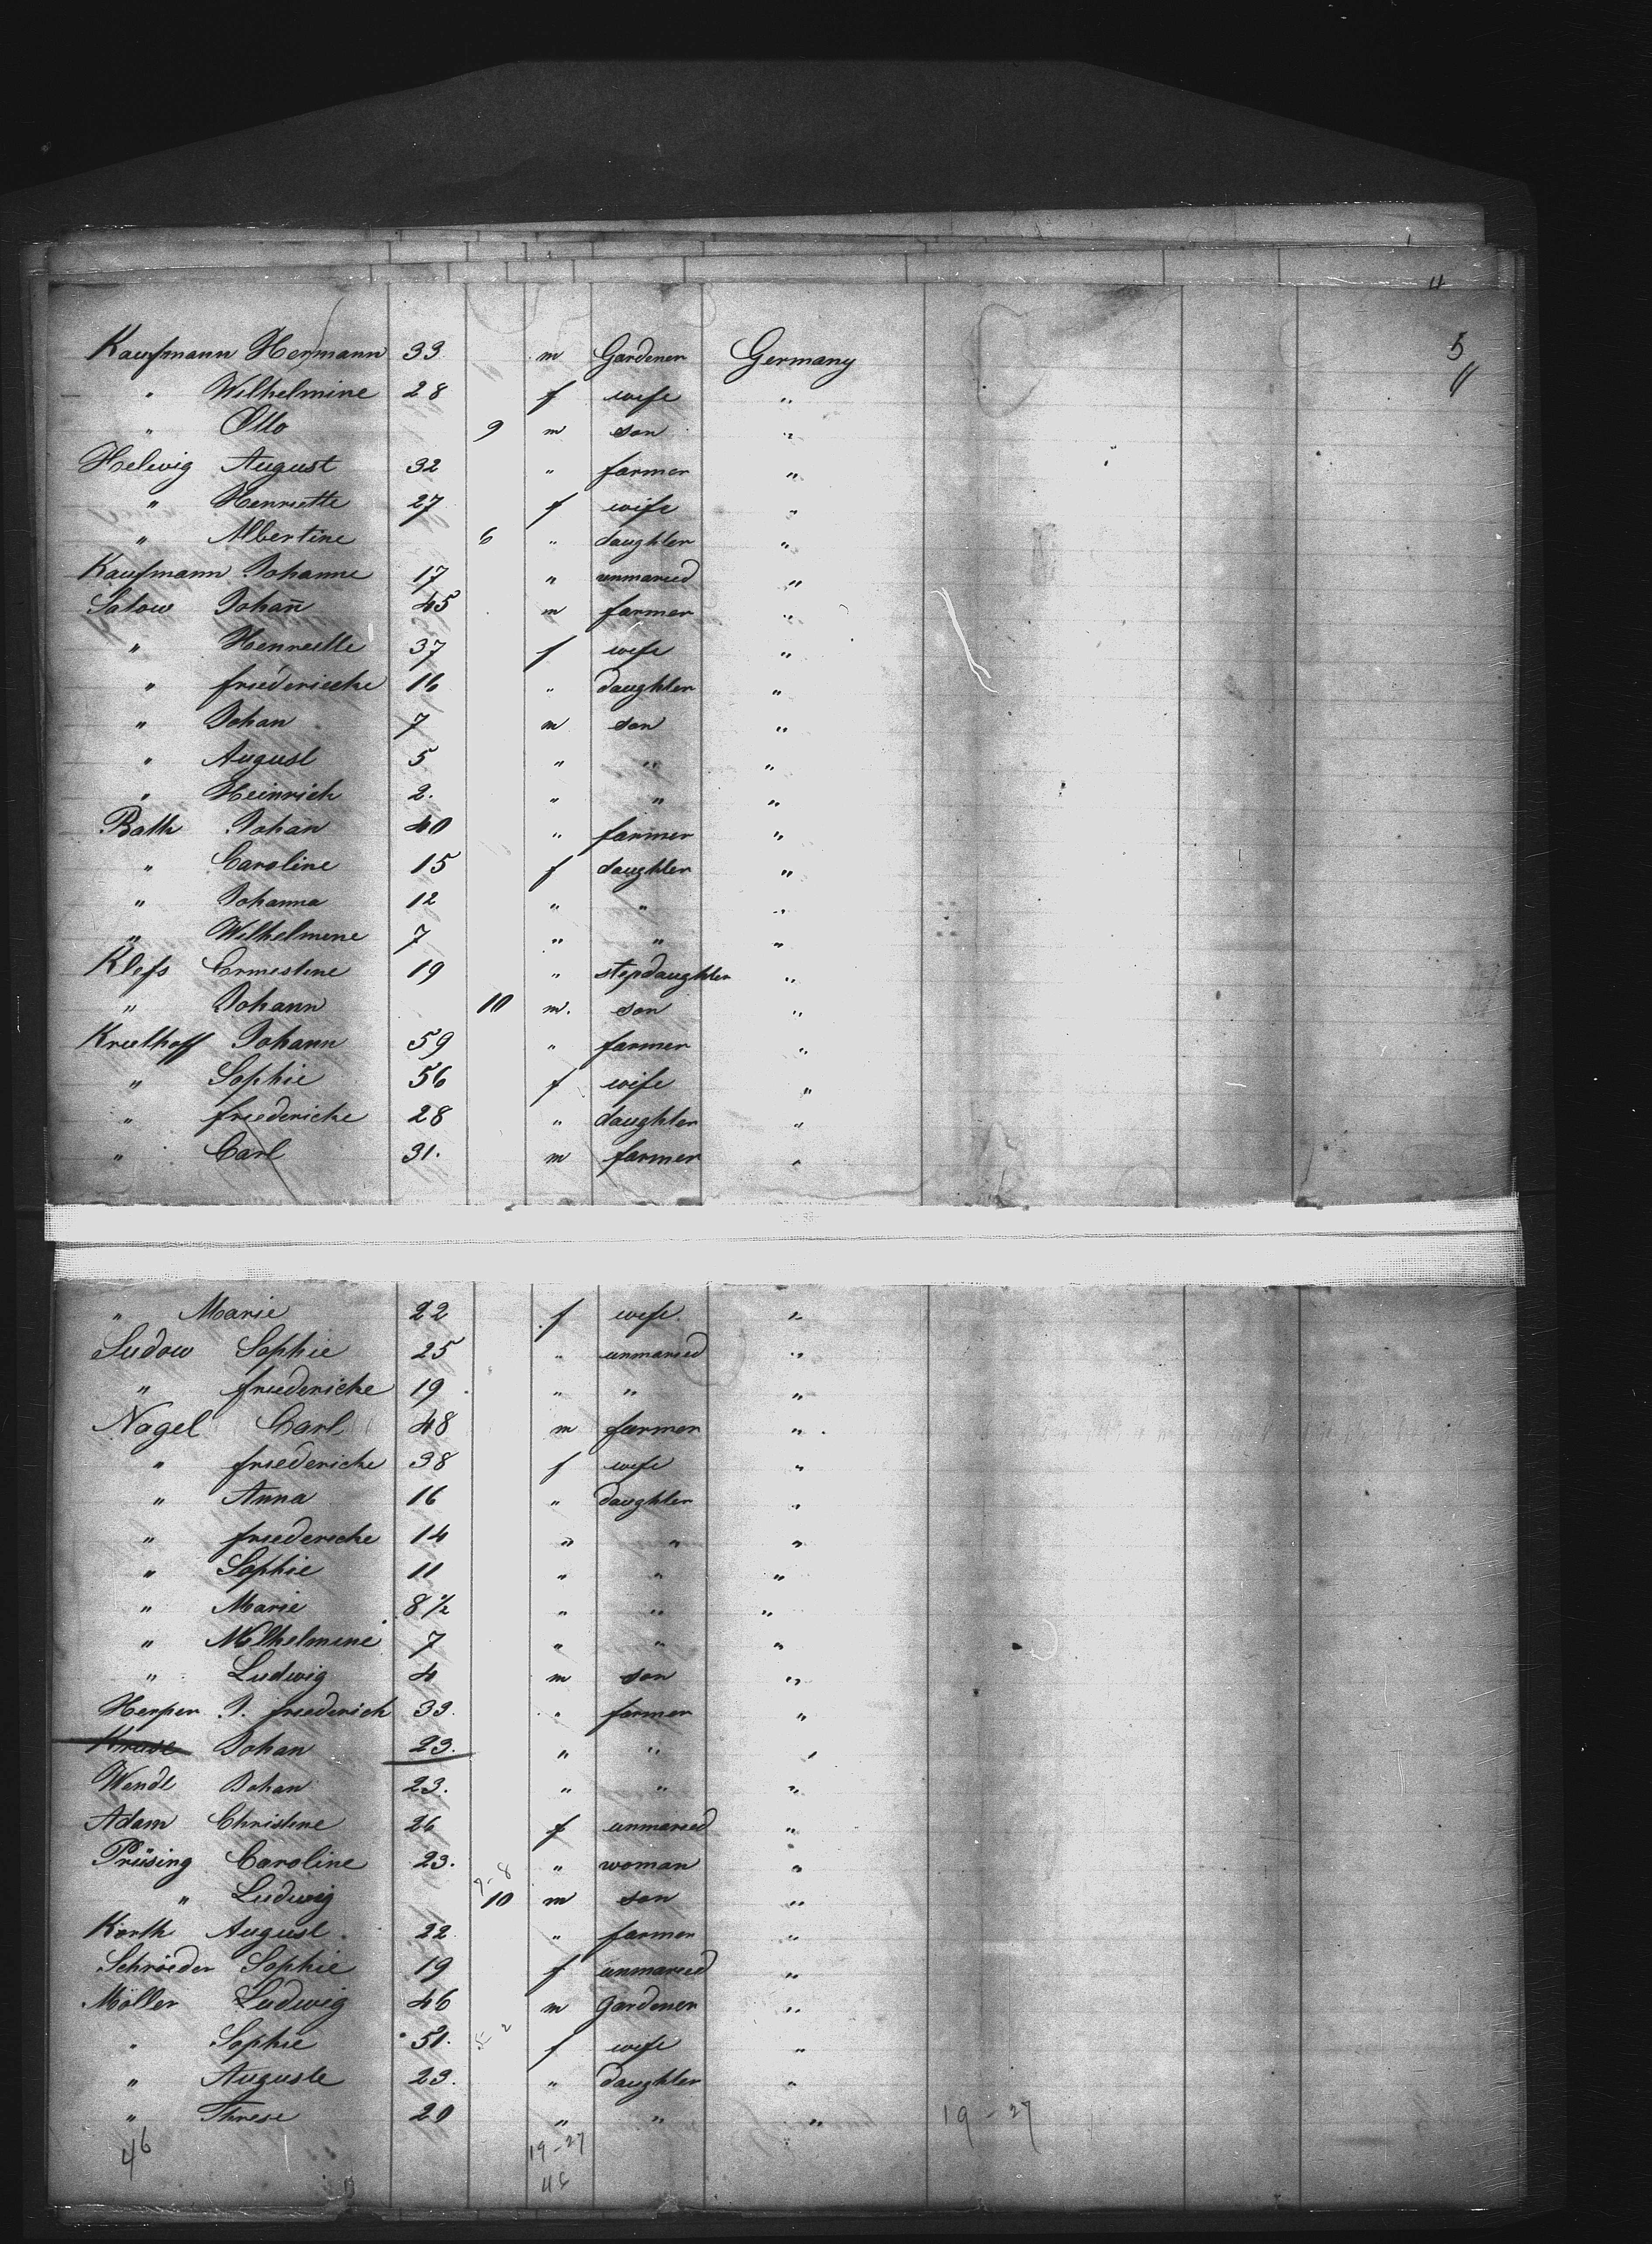 4
5
Kaufmann Hermann 33 m Gardener Germany
" Wilhelmine 28 f wife "
" Otto 9 m son "
Helwig August 32 " farmer "
" Henriette 27 f wife "
" Albertine 6 " daughter "
Kaufmann Johanne 17 " unmaried "
Satow Johan̄ 45 m farmer "
" Henriette 37 f wife "
" friedericke 16 " daughter "
" Johan 7 m son "
" August 5 " " "
" Heinrich 2. " " "
Bath Johan 40 " farmer "
" Caroline 15 f daughter "
" Johanna 12 " " "
" Wilhelmine 7 " " "
Klefs Ernestine 19 " stepdaughter "
" Johann 10 m. son "
Kruthoff Johann 59 " farmer "
" Sophie 56 f wife "
" friedericke 28 " daughter "
" Carl 31. m farmer "
" Marie 22 f wife "
Ludow Sophie 25 " unmaried "
" friedericke 19 " " "
Nagel Carl 48 m farmer "
" friedericke 38 f wife "
" Anna 16 " daughter "
" friedericke 14 " " "
" Sophie 11 " " "
" Marie 8 1/2 " " "
" Wilhelmine 7 " " "
" Ludwig 4 m son "
Herper J. friederich 33. " farmer "
Kruse Johan 23. " " "
Wendt Johan 23. " " "
Adam Christine 26 f unmaried "
Prüsing Caroline 23. " woman "
" Ludwig 10 m son "
Korth August 22 " farmer "
Schröeder Sophie 19 f unmaried "
Möller Ludwig 46 m Gardener "
" Sophie 51. f wife "
" Auguste 23. " daughter "
" Threse 20 " " " 19-27
46 19-27
46